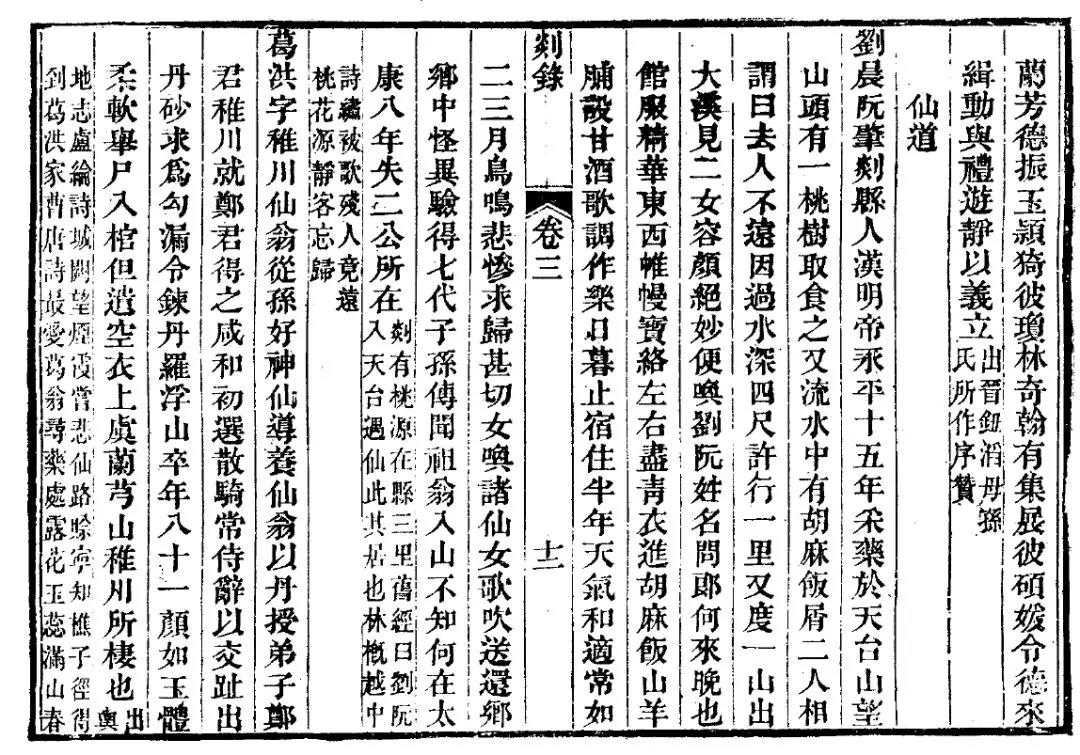 蘭芳德振玉頴猗彼瓊林奇翰有集展彼碩媛令德來
緝動與禮遊靜以義立出晉鈕滔母孫
氏所作序贊
仙道
劉晨阮肇剡縣人漢明帝永平十五年采藥於天台山望
山頭有一桃樹取食之又流水中有胡麻飯屑二人相
謂曰去人不遠因過水深四尺許行一里又度一山出
大溪見二女容顏絕妙便喚劉阮姓名問郎何來晚也
館服精華東西帷幔寶絡左右盡青衣進胡麻飯山羊
脯設甘酒歌調作樂日暮止宿住半年天氣和適常如
剡錄 卷三 十二
二三月鳥鳴悲慘求歸甚切女喚諸仙女歌吹送還鄉
鄉中怪異驗得七代子孫傳聞祖翁入山不知何在太
康八年失二公所在剡有桃源在縣三里舊經曰劉阮
入天台遇仙此其居也林槪越中
詩繡被歌殘人竟遠
桃花源靜客忘歸
葛洪字稚川仙翁從孫好神仙導養仙翁以丹授弟子鄭
君稚川就鄭君得之咸和初選散騎常侍辭以交趾出
丹砂求爲勾漏令鍊丹羅浮山卒年八十一顏如玉體
柔軟舉尸入棺但遺空衣上虞蘭芎山稚川所棲也出
輿
地志盧綸詩城闕望煙霞嘗悲仙路賒寧知樵子徑得
到葛洪家曹唐詩最愛葛翁尋藥處露花玉蕊滿山春